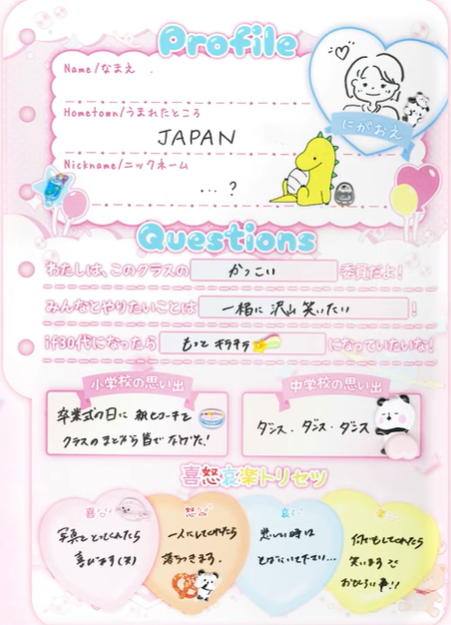 Profile
Name/なまえ
にがおえ
Hometown/うまれたところ
JAPAN
Nickname/ニックネーム
...?
Questions
わたしは、このクラスの かっこい 委員だよ!
みんなとやりたいことは 一緒に 沢山 笑いたい !
if30代になったら もっと キラキラ になっていたいな!
小学校の思い出
卒業式の日に 紙ヒコーキを
クラスのまどから皆で なげた!
中学校の思い出
ダンス・ダンス・ダンス
喜怒哀楽トリセツ
喜
写真を とってくれたら
喜びます(笑)
怒
一人にしてくれたら
落ちつきます.
哀
悲しい時は
そばにいて下さい...
何でもしてくれたら
笑います